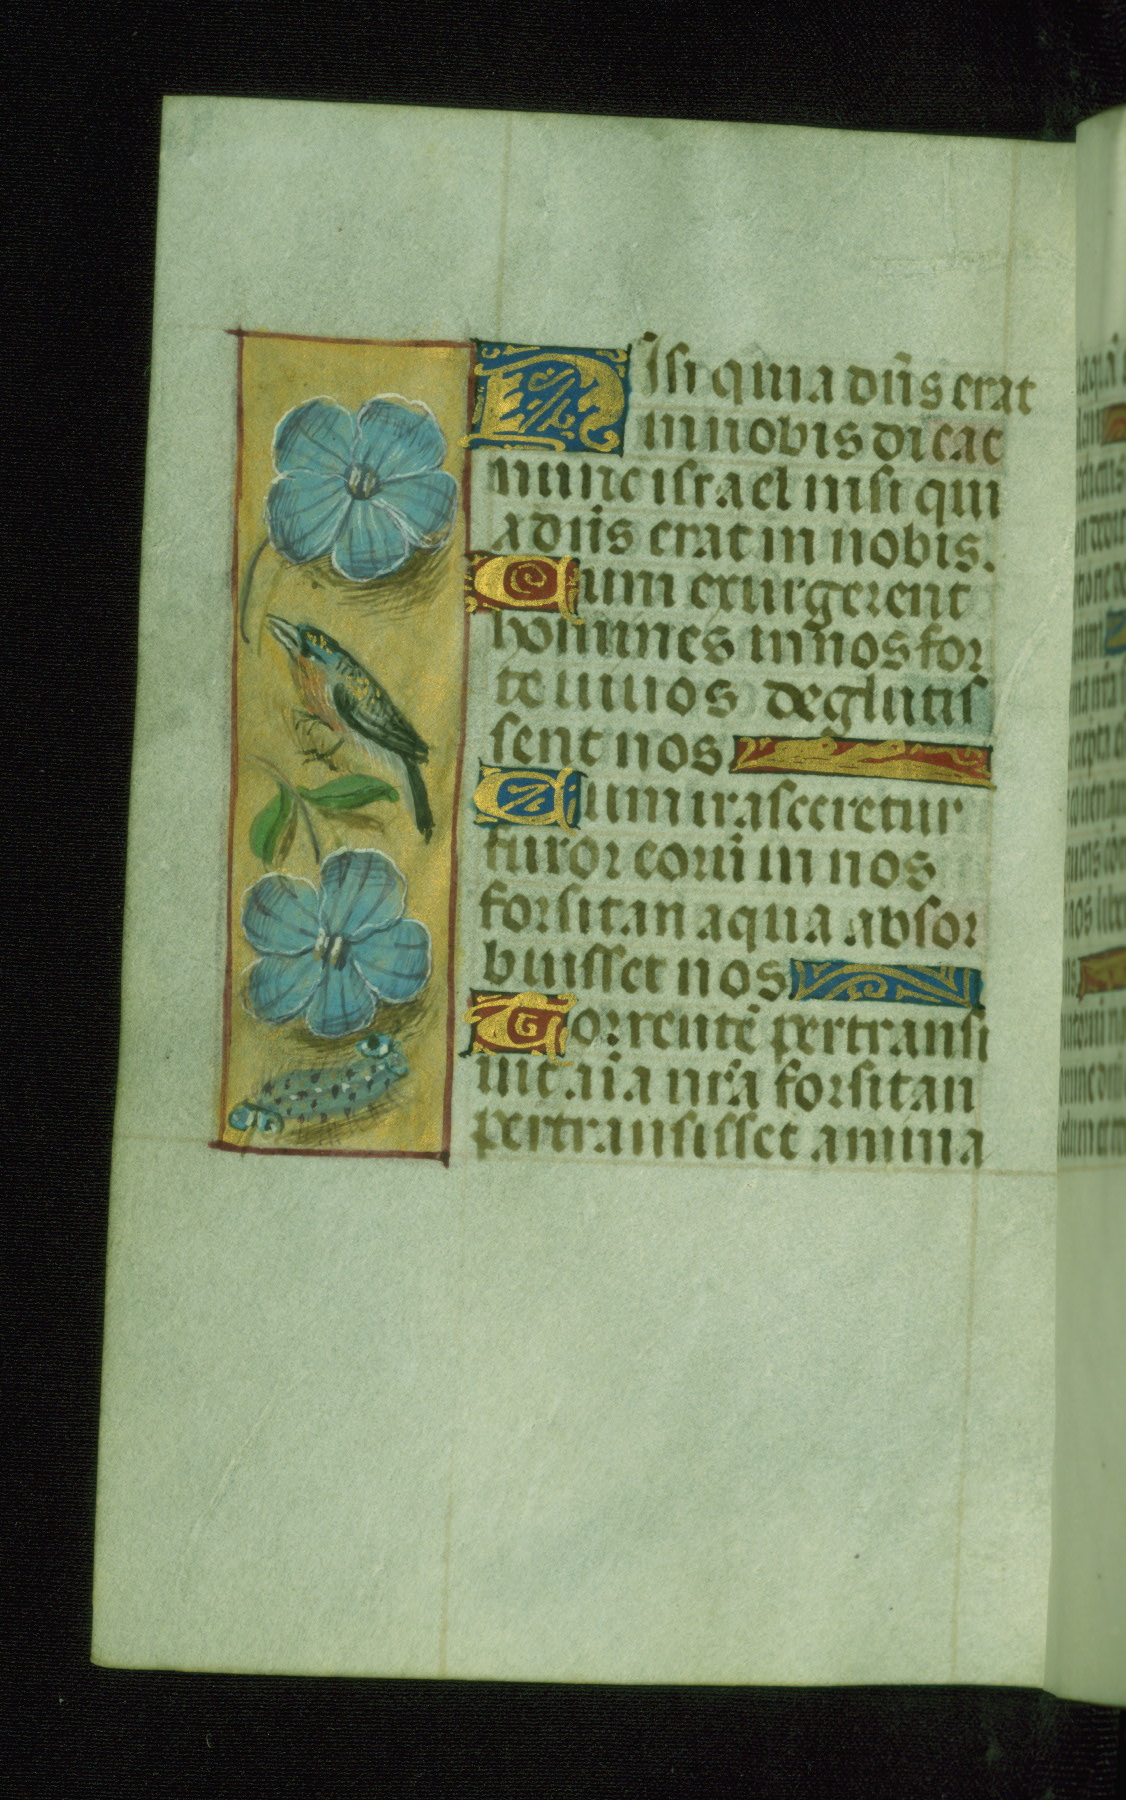 Nisi quia dñs erat
in nobis dicat
nunc israel nisi qui
a dñs erat in nobis.
Cum exurgerent
homines in nos for
te vivos deglutis
sent nos
Cum irasceretur
furor eorū in nos
forsitan aqua absor
buisset nos
Torrentē pertransi
vit aīa nr̄a forsitan
pertransisset anima